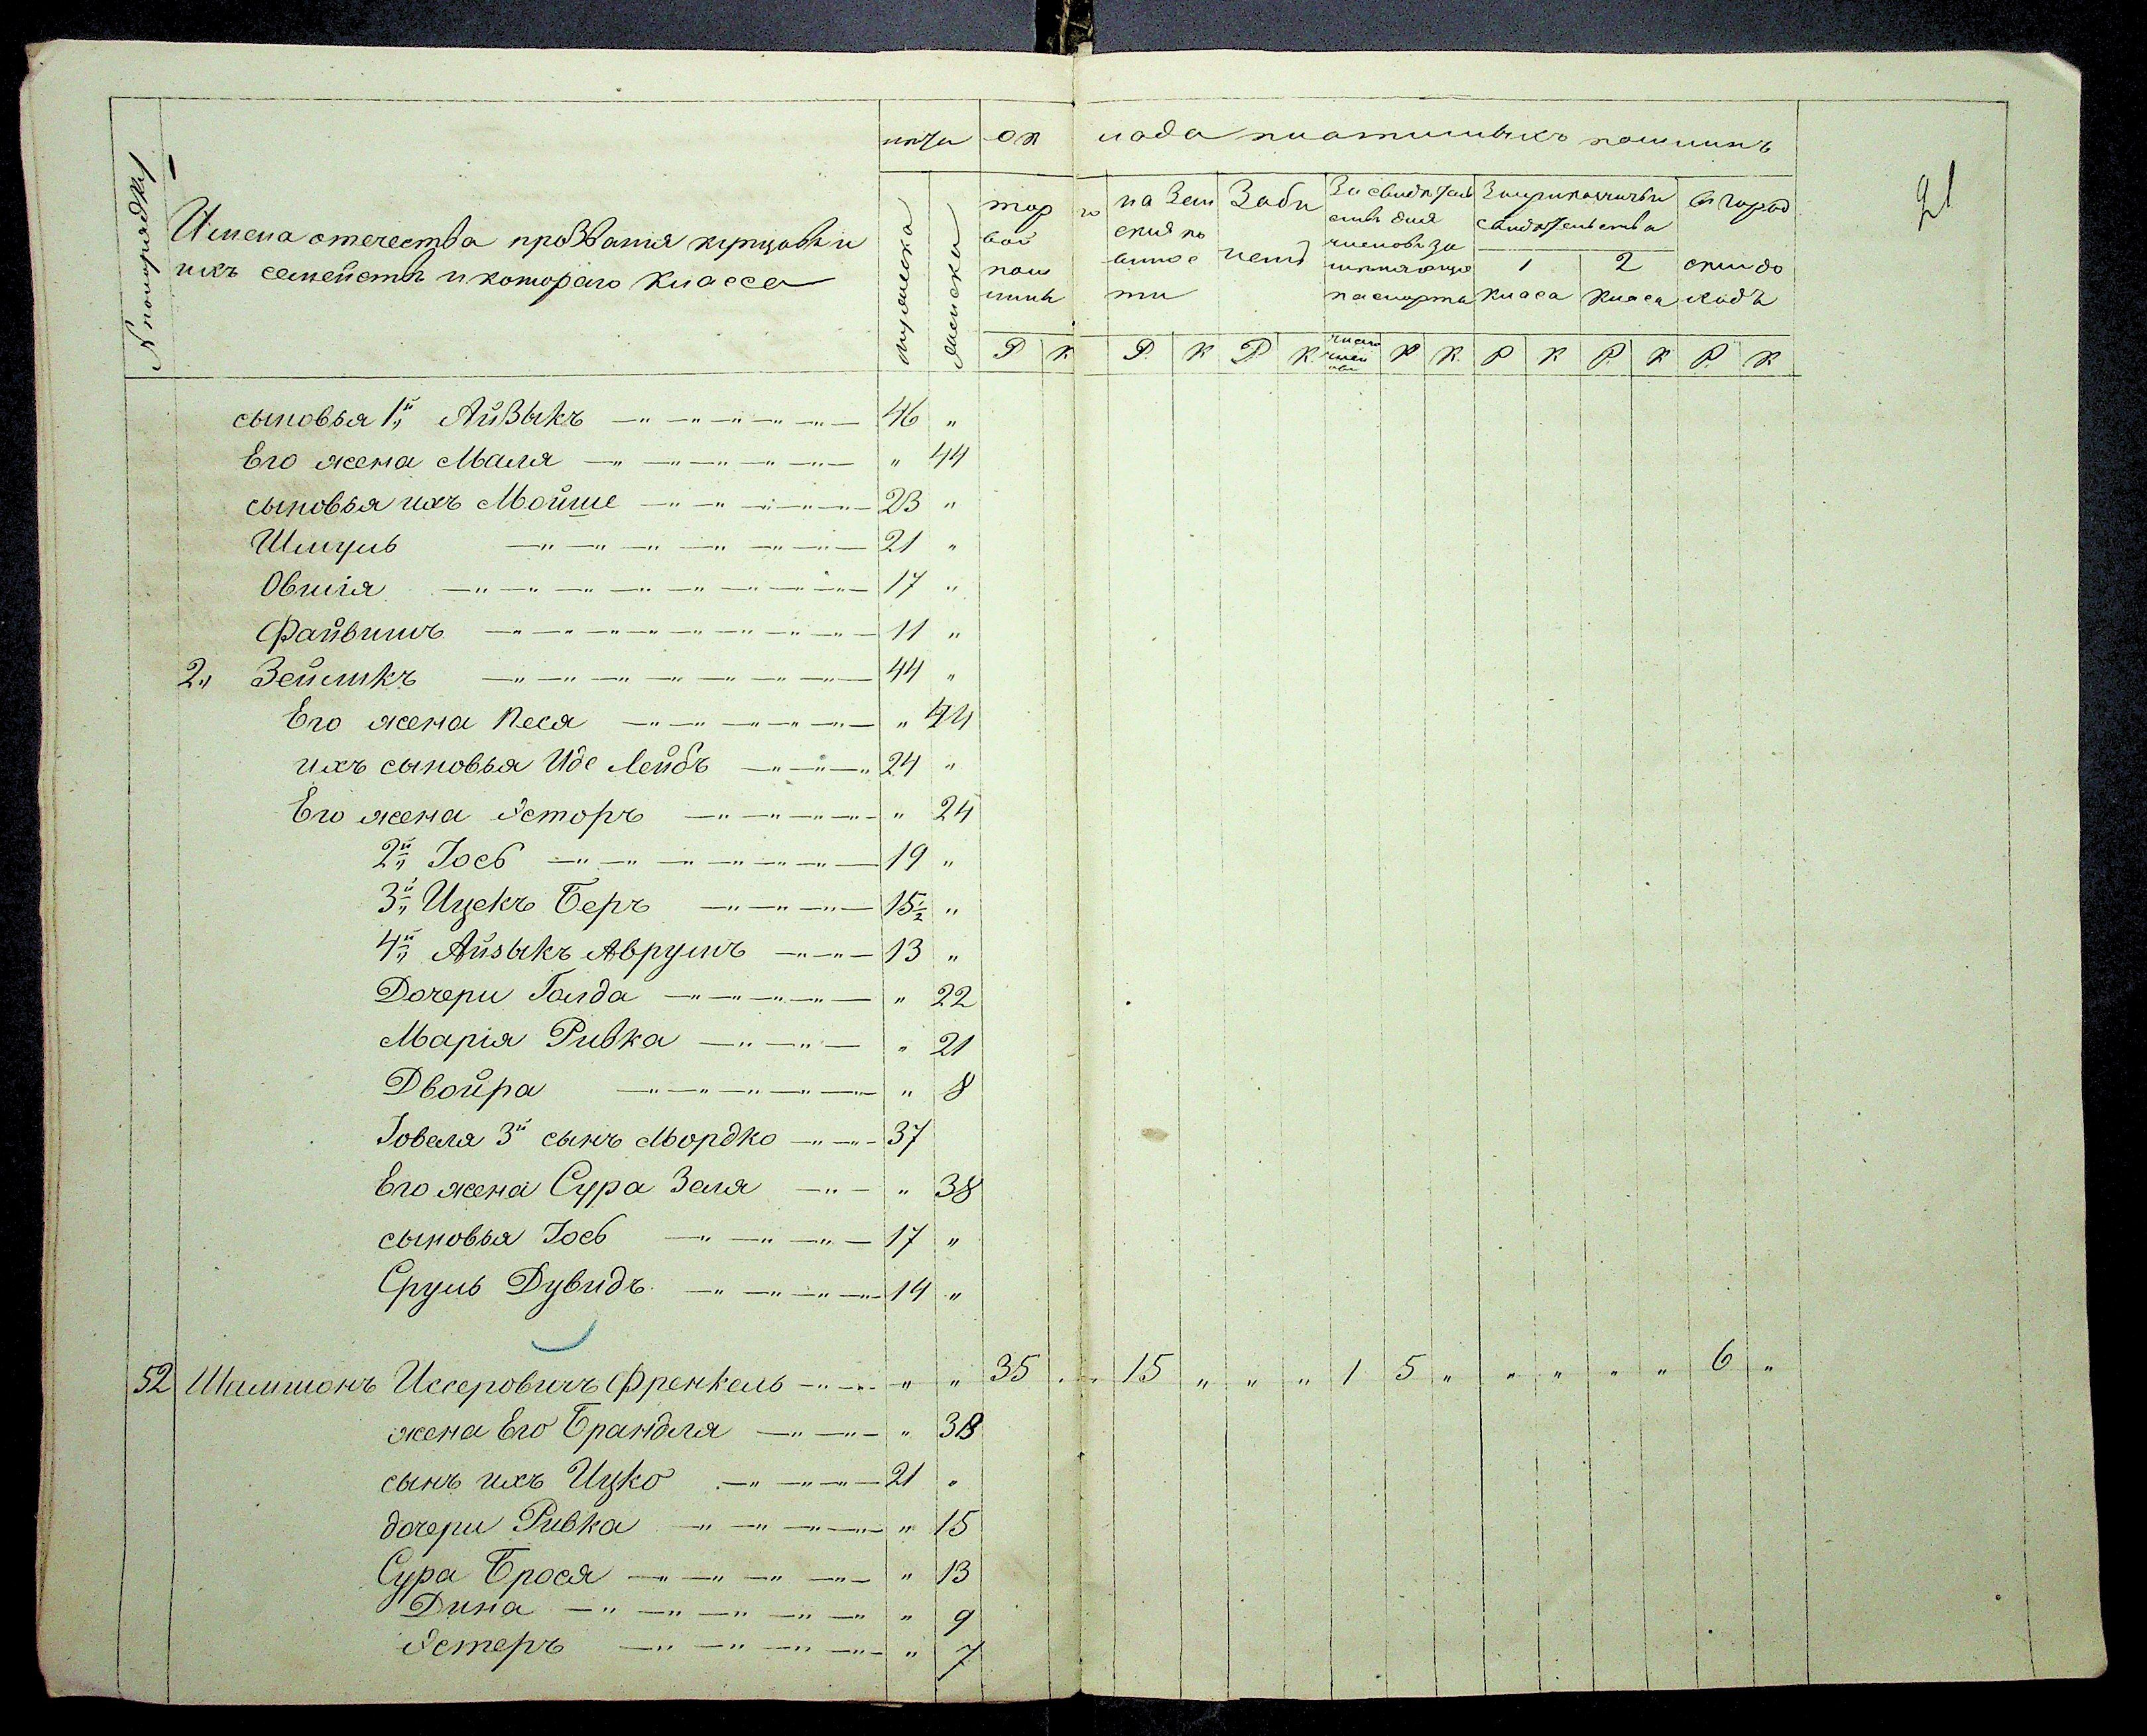 21
№ по порядку
Имена отечества прозвания купцовъ и
ихъ семействъ и котораго класса
лѣта
мужеска
женска
оклада платимыхъ пошлинъ
торговой пошлины
на земскія повинности
За би летъ
За свидѣтельства для членовъ заменяющія паспорта
За прикащичьи свидѣтельства
1 класа
2 класа
въ городскій доходъ
Р К Р К Р К число членовъ Р К Р К Р К Р К
сыновья 1й Айзыкъ 46 "
Его жена Маля " 44
сыновья ихъ Мойше 23 "
Шмуль 21 "
Овшія 17 "
Файвишъ 11 "
2" Зейликъ 44 "
Его жена Песя " 44
ихъ сыновья Иде Лейбъ 24 "
Его жена Эсторъ " 24
2й Іось 19 "
3й Ицекъ Беръ 15½ "
4й Айзыкъ Аврумъ 13 "
Дочери Голда " 22
Марія Ривка " 21
Двойра " 8
Іоваля 3й сынъ Мордко 37
Его жена Сура Зеля " 38
сыновья Іось 17 "
Сруль Дувидъ 14 "
52 Шлимонъ Иссеровичъ Френкель " " 35 . . 15 " " " 1 5 " " " " " 6 "
жена Его Брандля " 38
сынъ ихъ Ицко 21 "
дочери Ривка " 15
Сура Брося " 13
Дина " 9
Эстеръ " 7